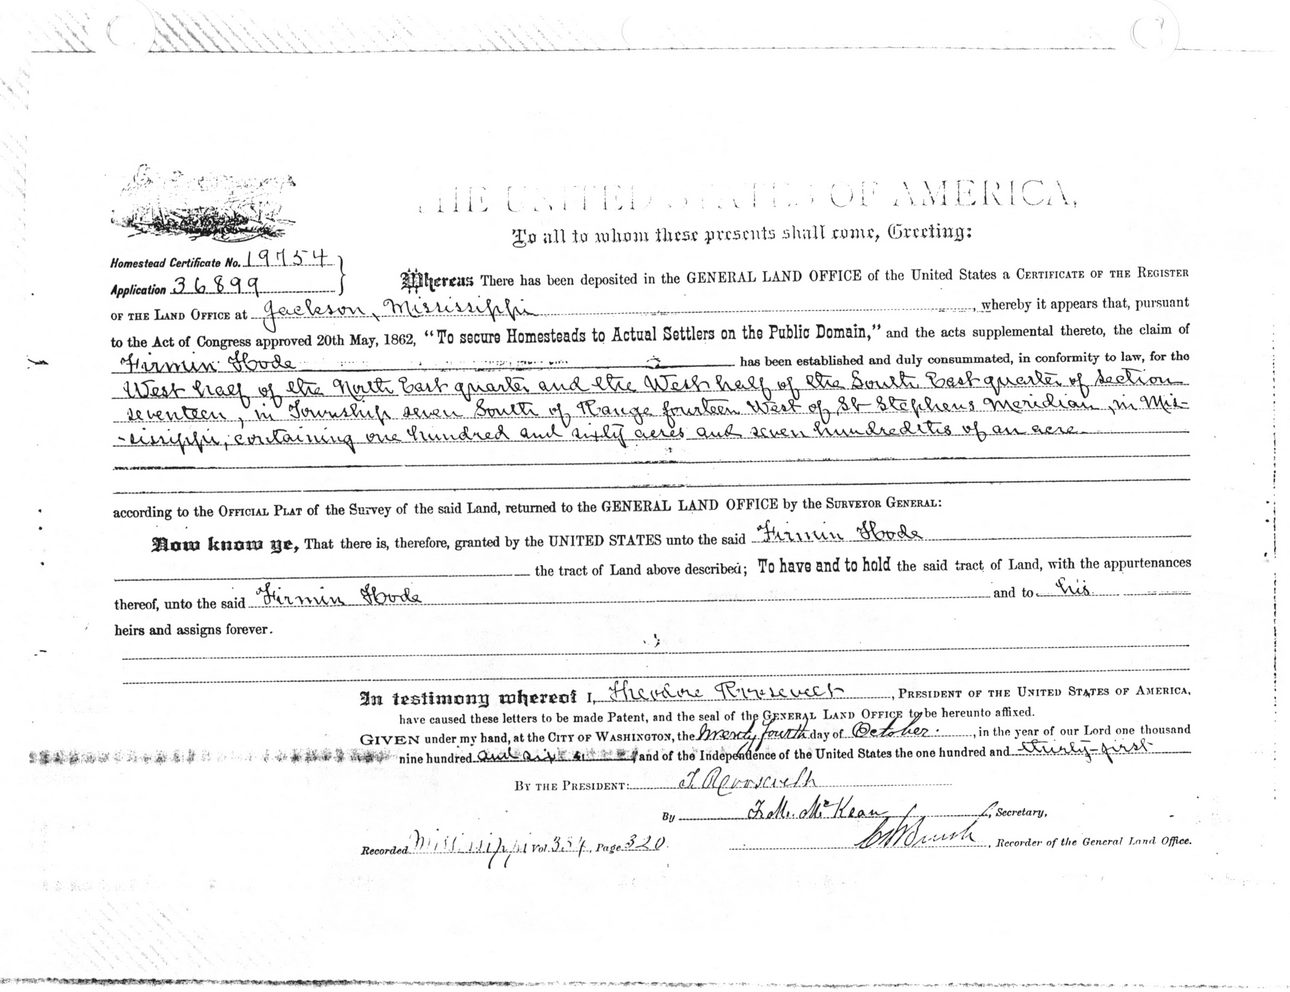 THE UNITED STATES OF AMERICA,
To all to whom these presents shall come, Greeting:
Homestead Certificate No. 19754
Application 36899
Whereas There has been deposited in the GENERAL LAND OFFICE of the United States a CERTIFICATE OF THE REGISTER
OF THE LAND OFFICE at Jackson, Mississippi, whereby it appears that, pursuant
to the Act of Congress approved 20th May, 1862, "To secure Homesteads to Actual Settlers on the Public Domain," and the acts supplemental thereto, the claim of
Firmin Hode has been established and duly consummated, in conformity to law, for the
West half of the North East quarter and the West half of the South East quarter of Section
seventeen, in Township seven South of Range fourteen West of St Stephens Meridian, in Mis-
-sissippi, containing one hundred and sixty acres and seven hundredths of an acre
according to the OFFICIAL PLAT of the Survey of the said Land, returned to the GENERAL LAND OFFICE by the SURVEYOR GENERAL:
Now know ye, That there is, therefore, granted by the UNITED STATES unto the said Firmin Hode
the tract of Land above described; To have and to hold the said tract of Land, with the appurtenances
thereof, unto the said Firmin Hode and to his
heirs and assigns forever.
In testimony whereof I, Theodore Roosevelt, PRESIDENT OF THE UNITED STATES OF AMERICA,
have caused these letters to be made Patent, and the seal of the GENERAL LAND OFFICE to be hereunto affixed.
GIVEN under my hand, at the CITY OF WASHINGTON, the twenty fourth day of October, in the year of our Lord one thousand
nine hundred and six and of the Independence of the United States the one hundred and thirty-first
BY THE PRESIDENT: T. Roosevelt
By F. M. McKean, Secretary,
Recorded Mississippi Vol. 354, Page 320
Recorder of the General Land Office.